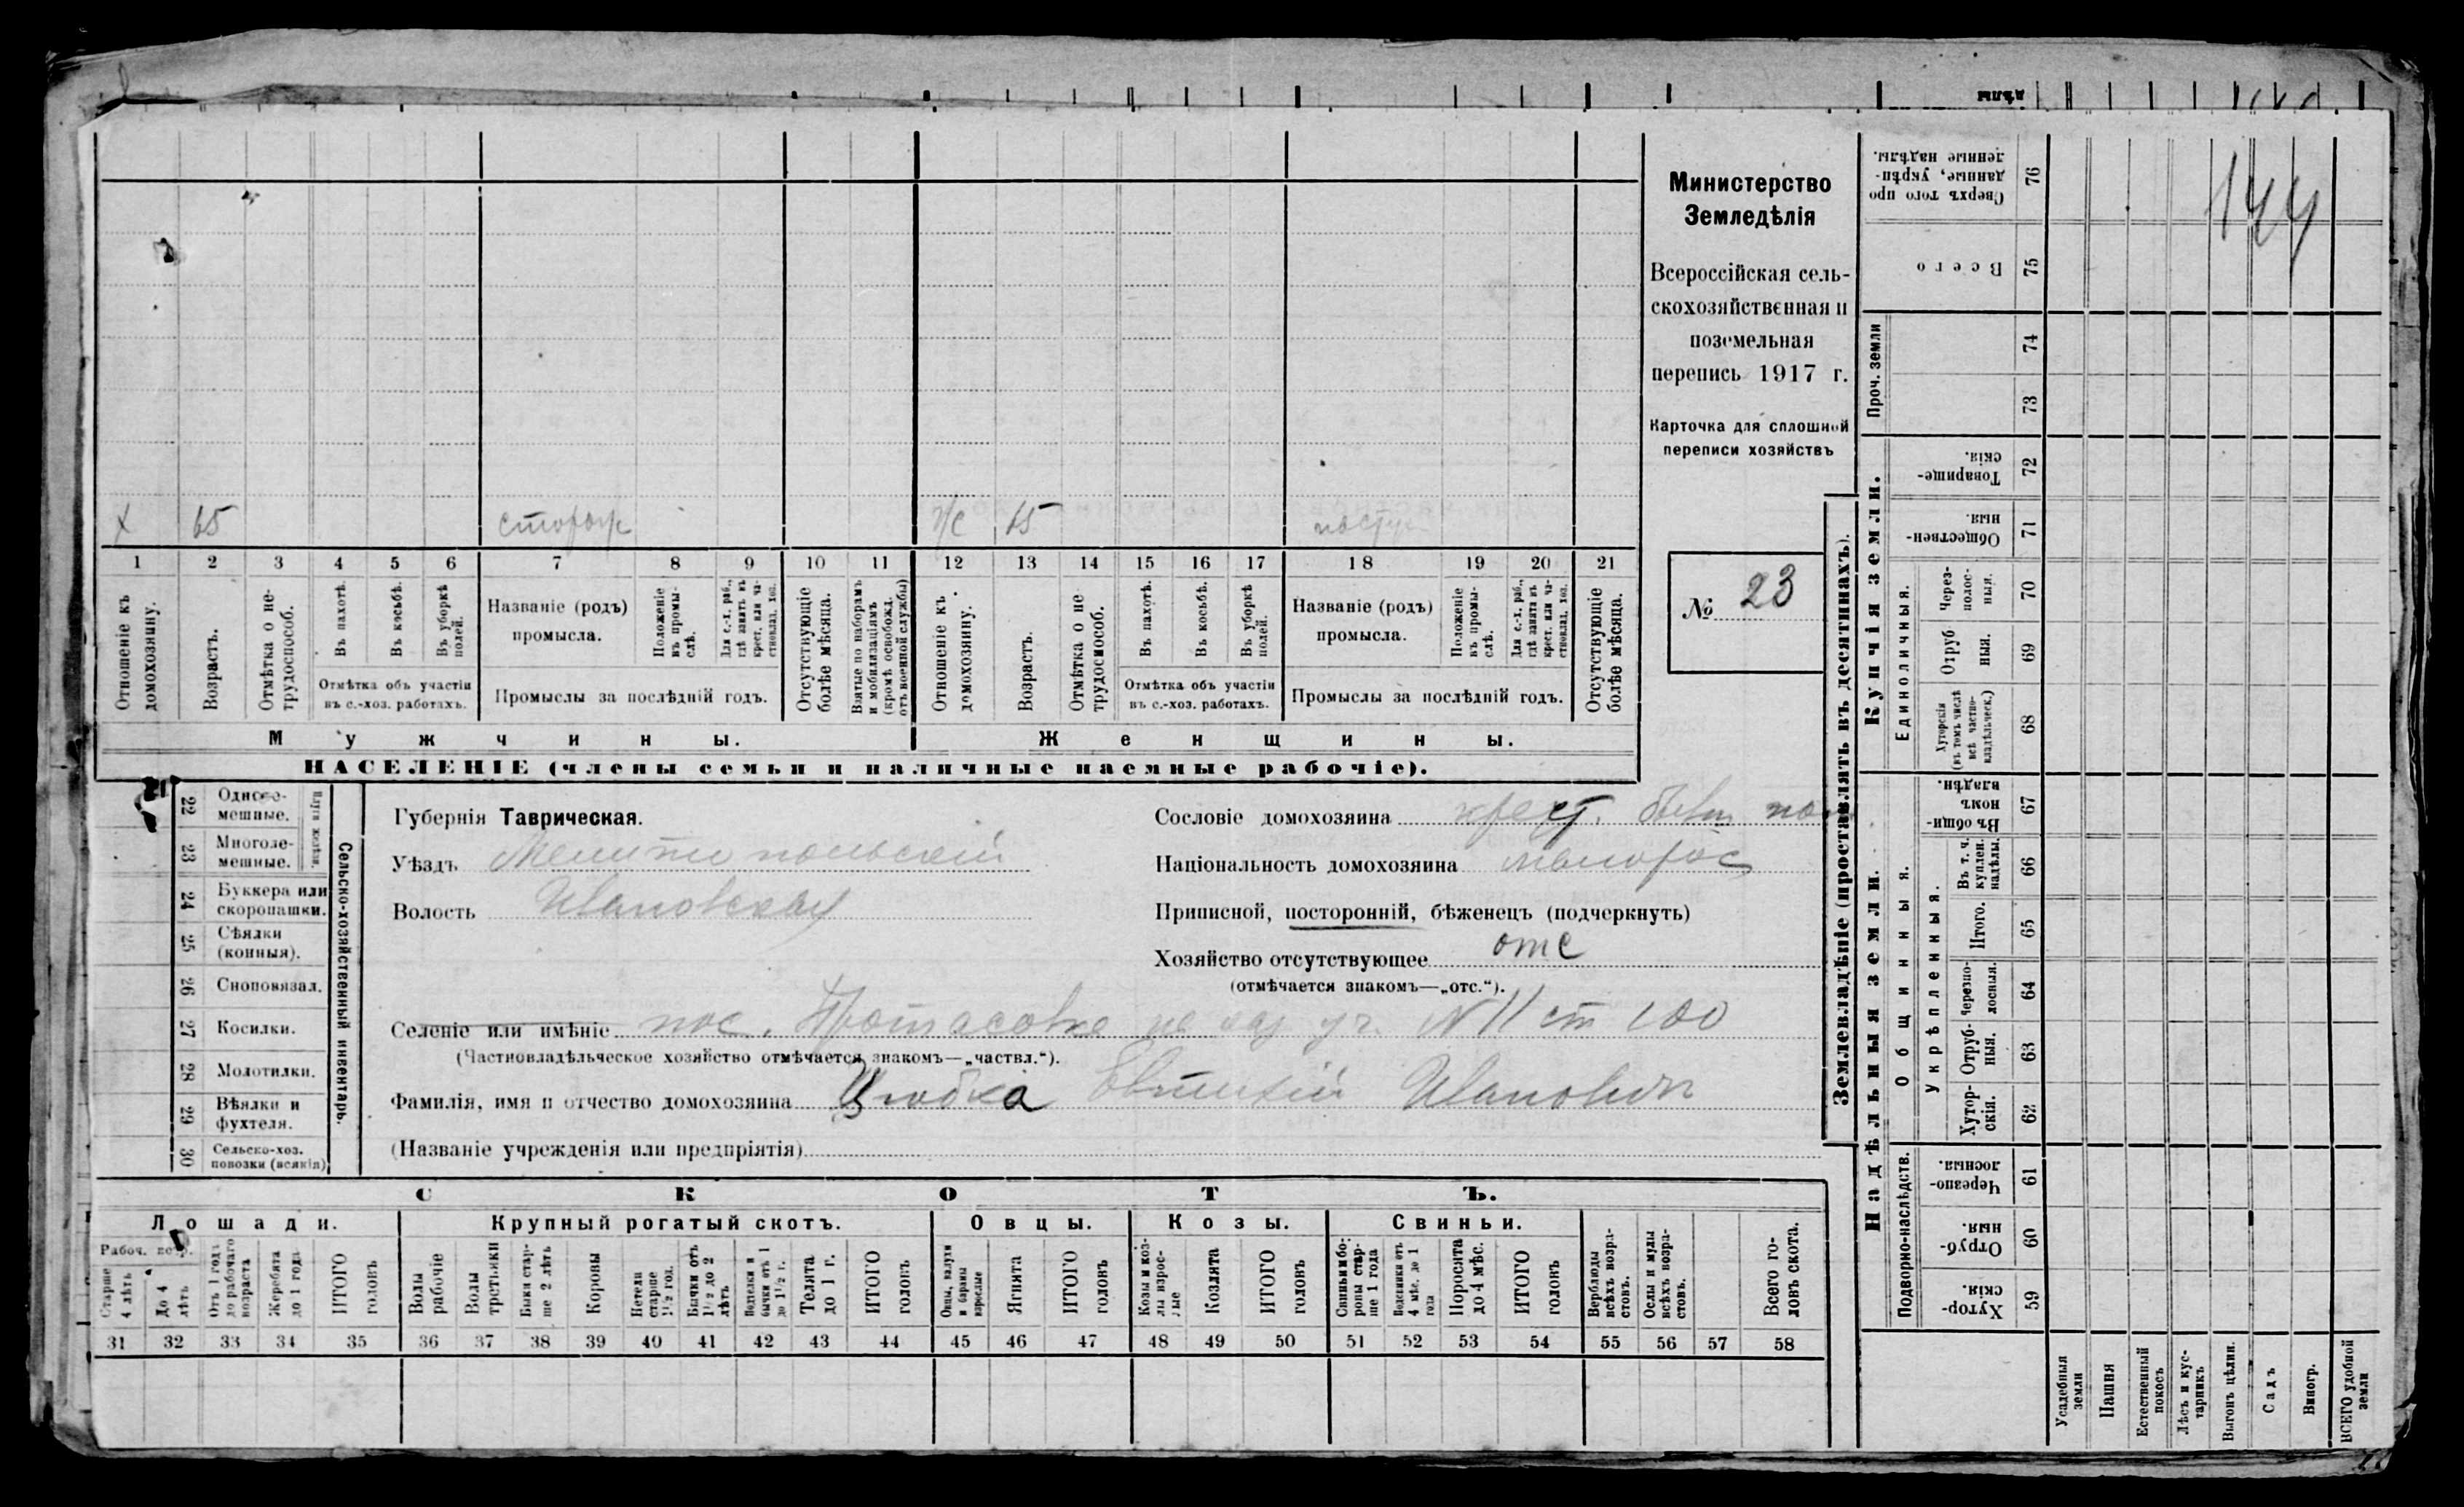 144
х 65 сторож ж 15
1 2 3 4 5 6 7 8 9 10 11 12 13 14 15 16 17 18 19 20 21
Отношеніе къ домохозяину.
Возрастъ.
Отмѣтка о не-трудоспособ.
Въ пахотѣ.
Въ косьбѣ.
Въ уборкѣ полей.
Отмѣтка объ участіи
въ с.-хоз. работахъ.
Названіе (родъ)
промысла.
Положеніе въ промы-слѣ.
Для с.-х. раб., гдѣ занятъ въ крест. или ча-стновлад. хоз.
Промыслы за послѣдній годъ.
Отсутствующіе болѣе мѣсяца.
Взятые по наборамъ и мобилизаціямъ (кромѣ освобожд. отъ военной службы)
Отношеніе къ домохозяину.
Возрастъ.
Отмѣтка о не трудоспособ.
Въ пахотѣ.
Въ косьбѣ.
Въ уборкѣ полей.
Отмѣтка объ участіи
въ с.-хоз. работахъ.
Названіе (родъ)
промысла.
Положеніе въ промы-слѣ.
Для с.-х. раб., гдѣ занята въ крест. или ча-стновлад. хоз.
Промыслы за послѣдній годъ.
Отсутствующіе болѣе мѣсяца.
Мужчины.
Женщины.
НАСЕЛЕНІЕ (члены семьи и наличные наемные рабочіе).
Министерство
Земледѣлія
Всероссійская сель-
скохозяйственная и
поземельная
перепись 1917 г.
Карточка для сплошной
переписи хозяйствъ
№ 23
22 Одноле-мешные.
23 Многоле-мешные.
24 Буккера или скоропашки.
25 Сѣялки (конныя).
26 Сноповязал.
27 Косилки.
28 Молотилки.
29 Вѣялки и фухтеля.
30 Сельско-хоз. повозки (всякія)
Сельско-хозяйственный инвентарь.
Губернія Таврическая.
Уѣздъ Мелитопольскій
Волость Ивановская
Сословіе домохозяина крест. бывш
Національность домохозяина малорос
Приписной, посторонній, бѣженецъ (подчеркнуть)
Хозяйство отсутствующее отс
(отмѣчается знакомъ—„отс.“).
Селеніе или имѣніе пос. Протасовка на каз уч. N 11 ст 100
(Частновладѣльческое хозяйство отмѣчается знакомъ—„частвл.“).
Фамилія, имя и отчество домохозяина Цюбка Евтихій Ивановичъ
(Названіе учрежденія или предпріятія)
СКОТЪ.
Лошади. Крупный рогатый скотъ. Овцы. Козы. Свиньи.
Старше 4 лѣтъ
До 4 лѣтъ
Отъ 1 года до рабочаго возраста
Жеребята до 1 года
ИТОГО головъ
Волы рабочіе
Волы третьяки
Быки стар-ше 2 лѣтъ
Коровы
Нетели старше 1½ год.
Бычки отъ 1½ до 2 лѣтъ
Подтелки и бычки отъ 1 до 1½ г.
Телята до 1 г.
ИТОГО головъ
Овцы, валухи и бараны взрослые
Ягнята
ИТОГО головъ
Козы и коз-лы взрос-лые
Козлята
ИТОГО головъ
Свиньи и бо-ровы стар-ше 1 года
Подсвинки отъ 4 мѣс. до 1 года
Поросята до 4 мѣс.
ИТОГО головъ
Верблюды всѣхъ возра-стовъ.
Ослы и мулы всѣхъ возра-стовъ.
Всего го-ловъ скота.
31 32 33 34 35 36 37 38 39 40 41 42 43 44 45 46 47 48 49 50 51 52 53 54 55 56 57 58
Землевладѣніе (проставлять въ десятинахъ).
Купчія земли.
Надѣльныя земли.
Проч. земли
Единоличныя.
Общинныя.
Укрѣпленныя.
Подворно-наслѣдств.
76 Сверхъ того про данные, укрѣп-ленные надѣлы.
75 Всего
74
73
72 Товарище-скія.
71 Обществен-ныя.
70 Через-полос-ныя.
69 Отруб ныя.
68 Хуторскія (въ томъ числѣ всѣ частно-владѣльческ.)
67 Въ общин-номъ владѣн.
66 Въ т. ч. куплен. надѣлы.
65 Итого.
64 Черезпо-лосныя.
63 Отруб-ныя.
62 Хутор-скія.
61 Черезпо-лосныя.
60 Отруб-ныя.
59 Хутор-скія.
Усадебныя земли
Пашня
Естественный покосъ
Лѣсъ и кус-тарникъ
Выгонъ цѣлин.
Садъ
Виногр.
ВСЕГО удобной земли